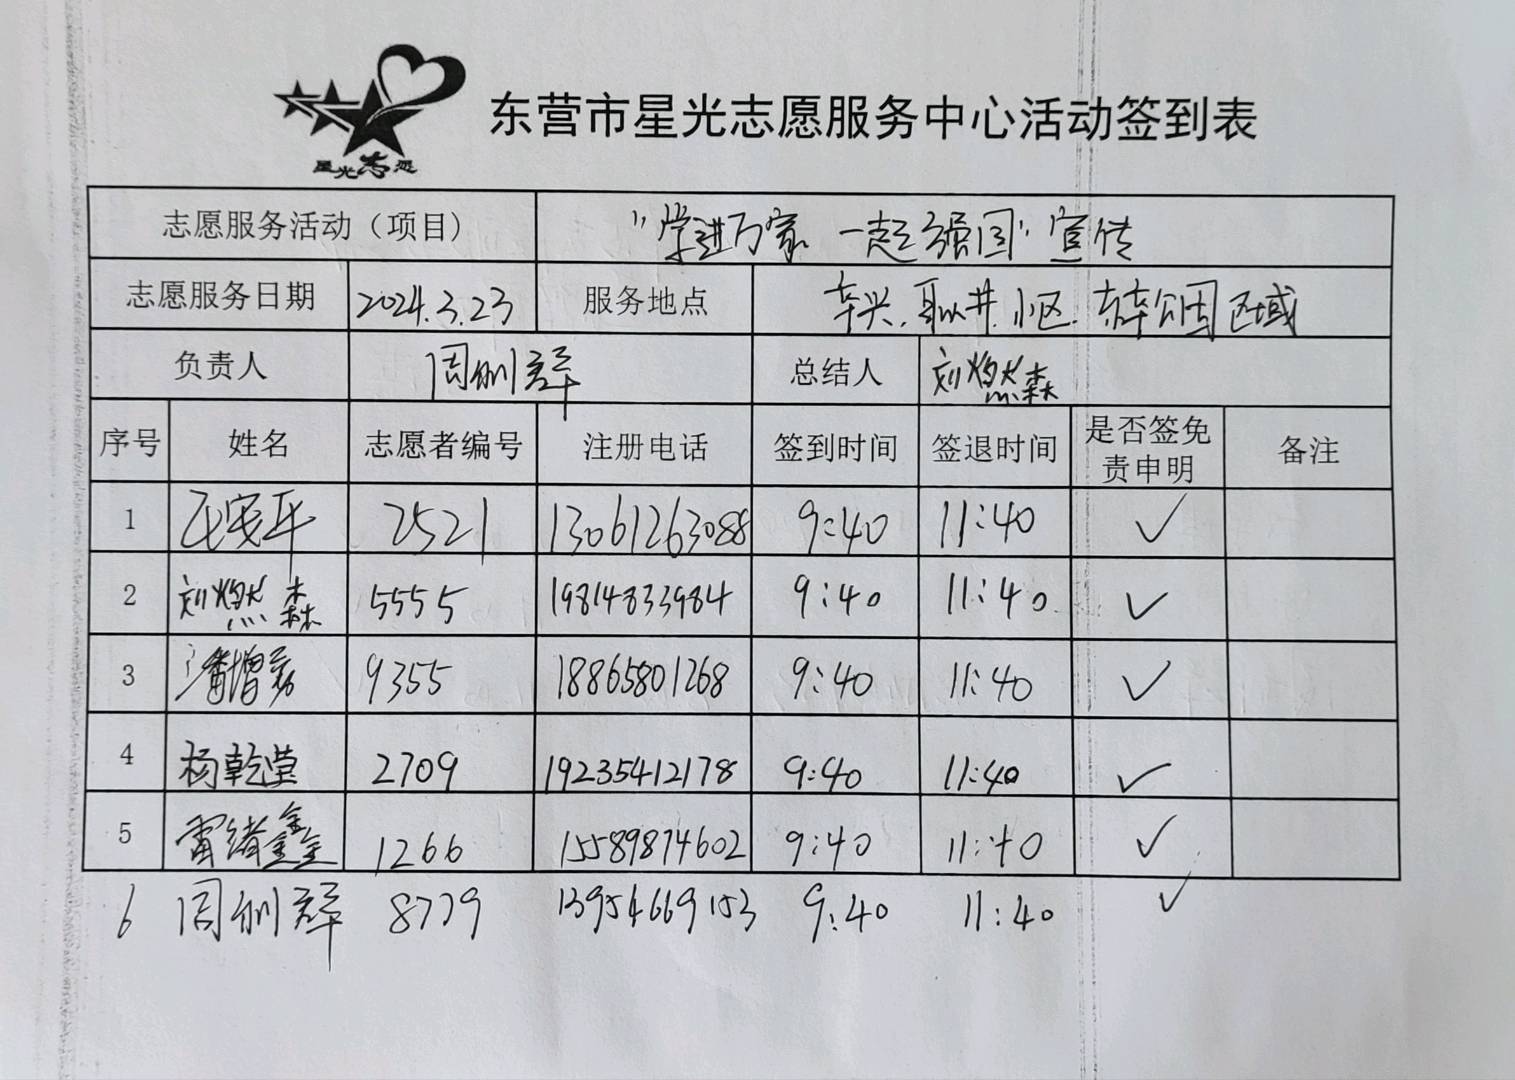 星光志愿
东营市星光志愿服务中心活动签到表
志愿服务活动（项目） "学进万家 一起强国"宣传
志愿服务日期 2024.3.23 服务地点 辛兴、耿井小区、东辛公园区域
负责人 周训群 总结人 刘燃森
序号 姓名 志愿者编号 注册电话 签到时间 签退时间 是否签免责申明 备注
1 2521 13061263088 9:40 11:40 ✓
2 刘燃森 5555 19814833984 9:40 11:40 ✓
3 潘增 9355 18865801268 9:40 11:40 ✓
4 杨乾莹 2709 19235412178 9:40 11:40 ✓
5 雷绪鑫 1266 15589874602 9:40 11:40 ✓
6 周训群 8779 13954669153 9:40 11:40 ✓